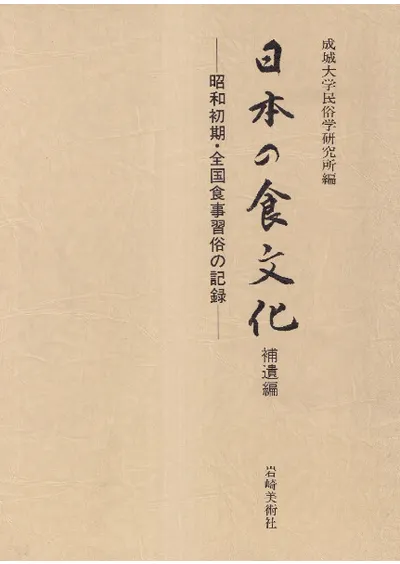 成城大学民俗学研究所編
日本の食文化
補遺編
──昭和初期・全国食事習俗の記録──
岩崎美術社